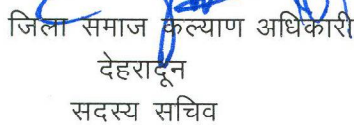 जिला समाज कल्याण अधिकारी
देहरादून
सदस्य सचिव